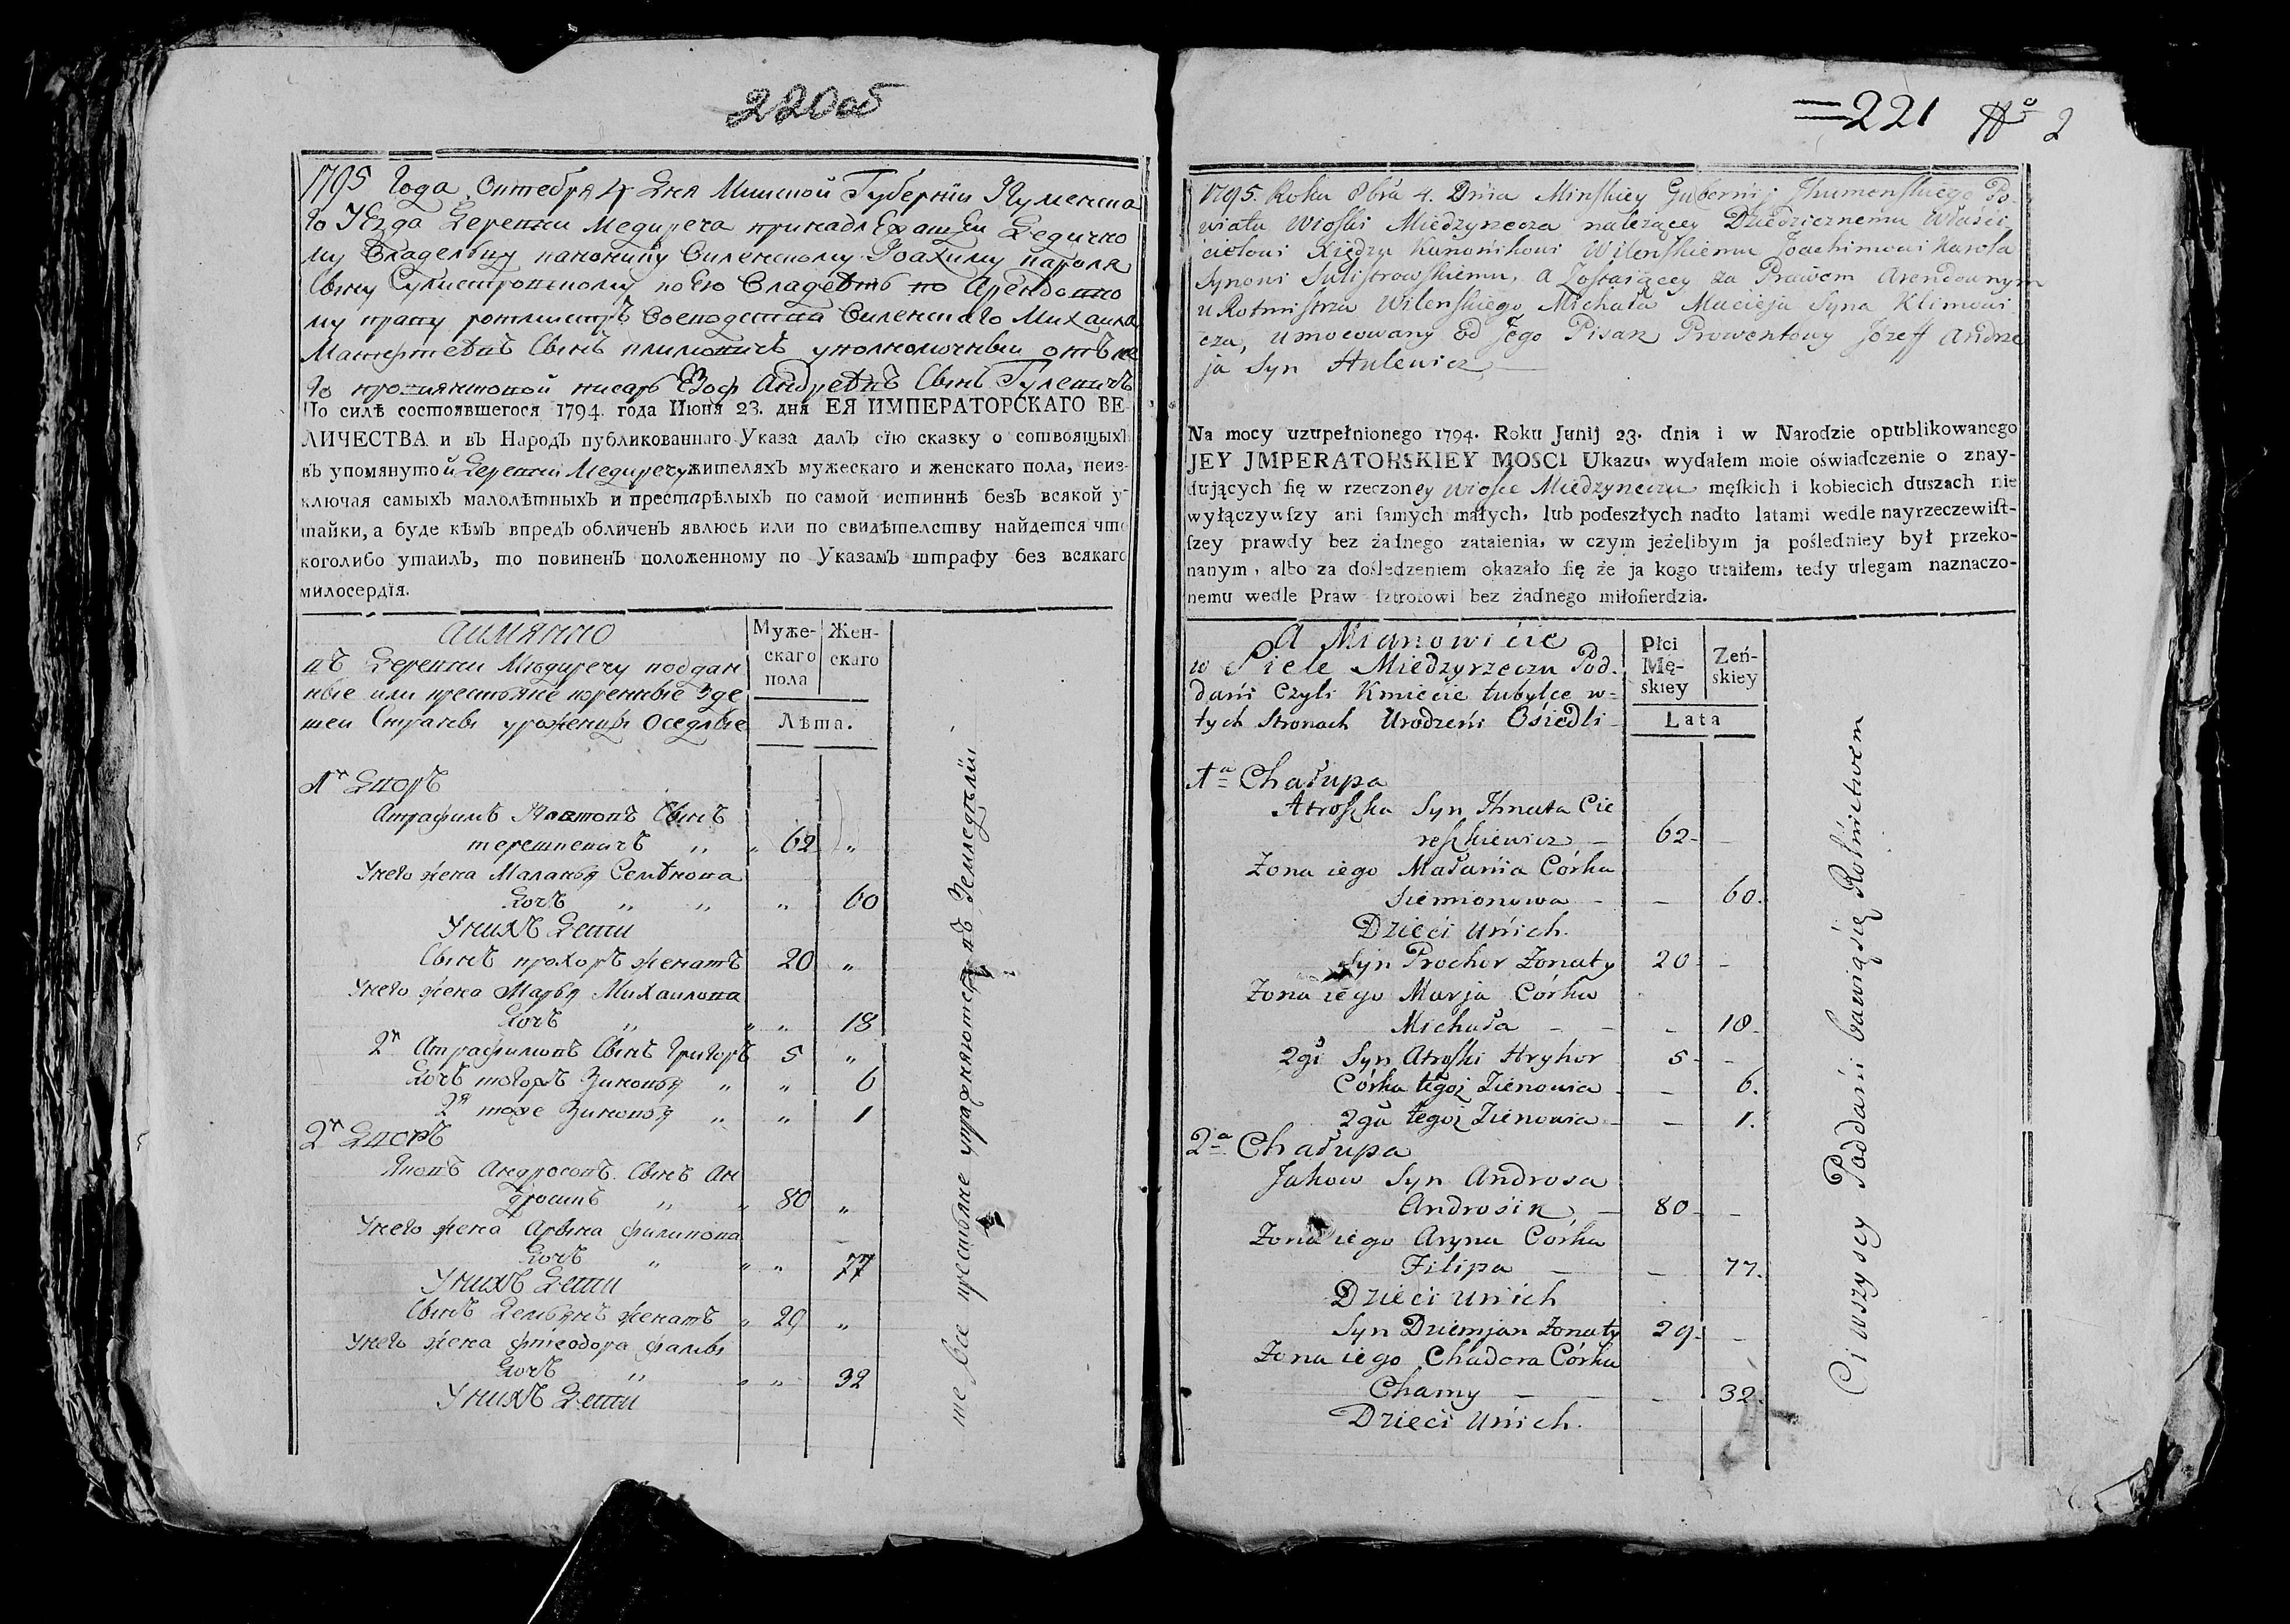 220об
1795 Года Октебря 4 Дня Минской Губернии Игуменска
го Уезда Деревни Медиреча принадлежащей Дедично
му Владельцу канонику Виленскому Иоахиму Кароля
Сыну Сулистровскому по Его Владеть по Арендовно
му праву ротмистръ Воеводства Виленскаго Михаила
Матеушевъ Сынъ Климовичъ уполномочный отъ не
го провиянтовой писарь Езоф Андреевъ Сынъ Гулевичъ
По силѣ состоявшегося 1794. года Июня 23. дня ЕЯ ИМПЕРАТОРСКАГО ВЕ-
ЛИЧЕСТВА и въ Народъ публикованнаго Указа далъ сїю сказку о состоящыхъ
въ упомянутой Деревни Медиречу жителяхъ мужескаго и женскаго пола, неиз-
ключая самыхъ малолѣтныхъ и престарѣлыхъ по самой истиннѣ безъ всякой у-
тайки, а буде кѣмъ впредъ обличенъ явлюсь или по свидѣтелству найдется что
коголибо утаилъ, то повиненъ положенному по Указамъ штрафу без всякаго
милосердїя.
аимянно
въ Деревни Мюдиречу поддан
ные или крестьяне коренные Зде
шеи Страны урожении Оседлые
Муже-
скаго
пола
Жен-
скаго
Лѣта.
1й Дворъ
Атрафимъ Сынъ
терешкевичъ " " 62 "
Унего жена Маланья Семѣнова
Дочъ " " " 60
Унихъ Дети
Сынъ прохоръ женатъ 20 "
Унего жена Марья Михаилова
Дочъ " " " 18
2й Атрафимовъ Сынъ Григоръ 5 "
Дочъ Зиновья " " 6
2я тоже Зиновья " " 1
2й Дворъ
Яковъ Андросовъ Сынъ Ан
дросикъ " " 80 "
Унего жена Арына филипова
Дочъ " " " 77
Унихъ Дети
Сынъ Демьянъ женатъ " 29 "
Унего жена фтеодора фамы
Дочъ " " " 32
Унихъ Дети
те Все крестьяне упражняютсе въ Земледѣлїи
=221 No 2
1795. Roku 8bra 4. Dnia Minskiey Gubernij Jhumenskiego Po-
wiatu Wioski Miedzyrzecza należącey Dziedzicznemu Właści
cielowi Xiędzu Kanonikowi Wilenskiemu Joachimowi Karola
Synowi Sulistrowskiemu, a Zostaiącey za Prawem Arendownym
u Rotmistrza Wilenskiego Michała Macieja Syna Klimowi
cza, umocowany od Jego Pisarz Prowentowy Józeff Andrze
ja Syn Hulewicz
Na mocy uzupełnionego 1794. Roku Junij 23. dnia i w Narodzie opublikowanego
JEY JMPERATORSKIEY MOSCI Ukazu, wydałem moie oświadczenie o znay-
dujących ſię w rzeczoney wiosce Miedzyrzeczu męſkich i kobiecich duszach nie
wyłączywſzy ani ſamych małych, lub podeszłych nadto latami wedle nayrzeczewiſt-
ſzey prawdy bez żadnego zataienia, w czym jeżelibym ja poślednіey był przeko-
nanym, albo za dośledzeniem okazało ſię że ja kogo utaiłem, tedy ulegam naznaczo-
nemu wedle Praw ſztrofowi bez żadnego miłoſierdzia.
A Mianowicie
w Siele Miedzyrzeczu Pod-
dani Czyli Kmiecie tubylce w-
tych Stronach Urodzeni Osiedli
Płci
Mę-
skiey
Zeń-
skiey
Lata
1a Chałupa
Atroszka Syn Jhnata Cie
reszkiewicz – 62 –
Zona iego Małania Córka
Siemionowa – – 60.
Dzieci Unich.
Syn Prochor Zonaty 20 –
Zona iego Marja Córka
Michała – – 18.
2gi Syn Atroszki Hryhor 5 –
Córka tegoż Zienowia – 6.
2ga tegoż Zienowia – – 1.
2a Chałupa
Jakow Syn Androsa
Androsik – 80 –
Zona iego Aryna Córka
Filipa – – 77.
Dzieci Unich
Syn Dziemjan Zonaty 29 –
Zona iego Chadora Córka
Chamy – – 32.
Dzieci Unich.
Ci wszyscy Poddani bawią się Rolnictwem